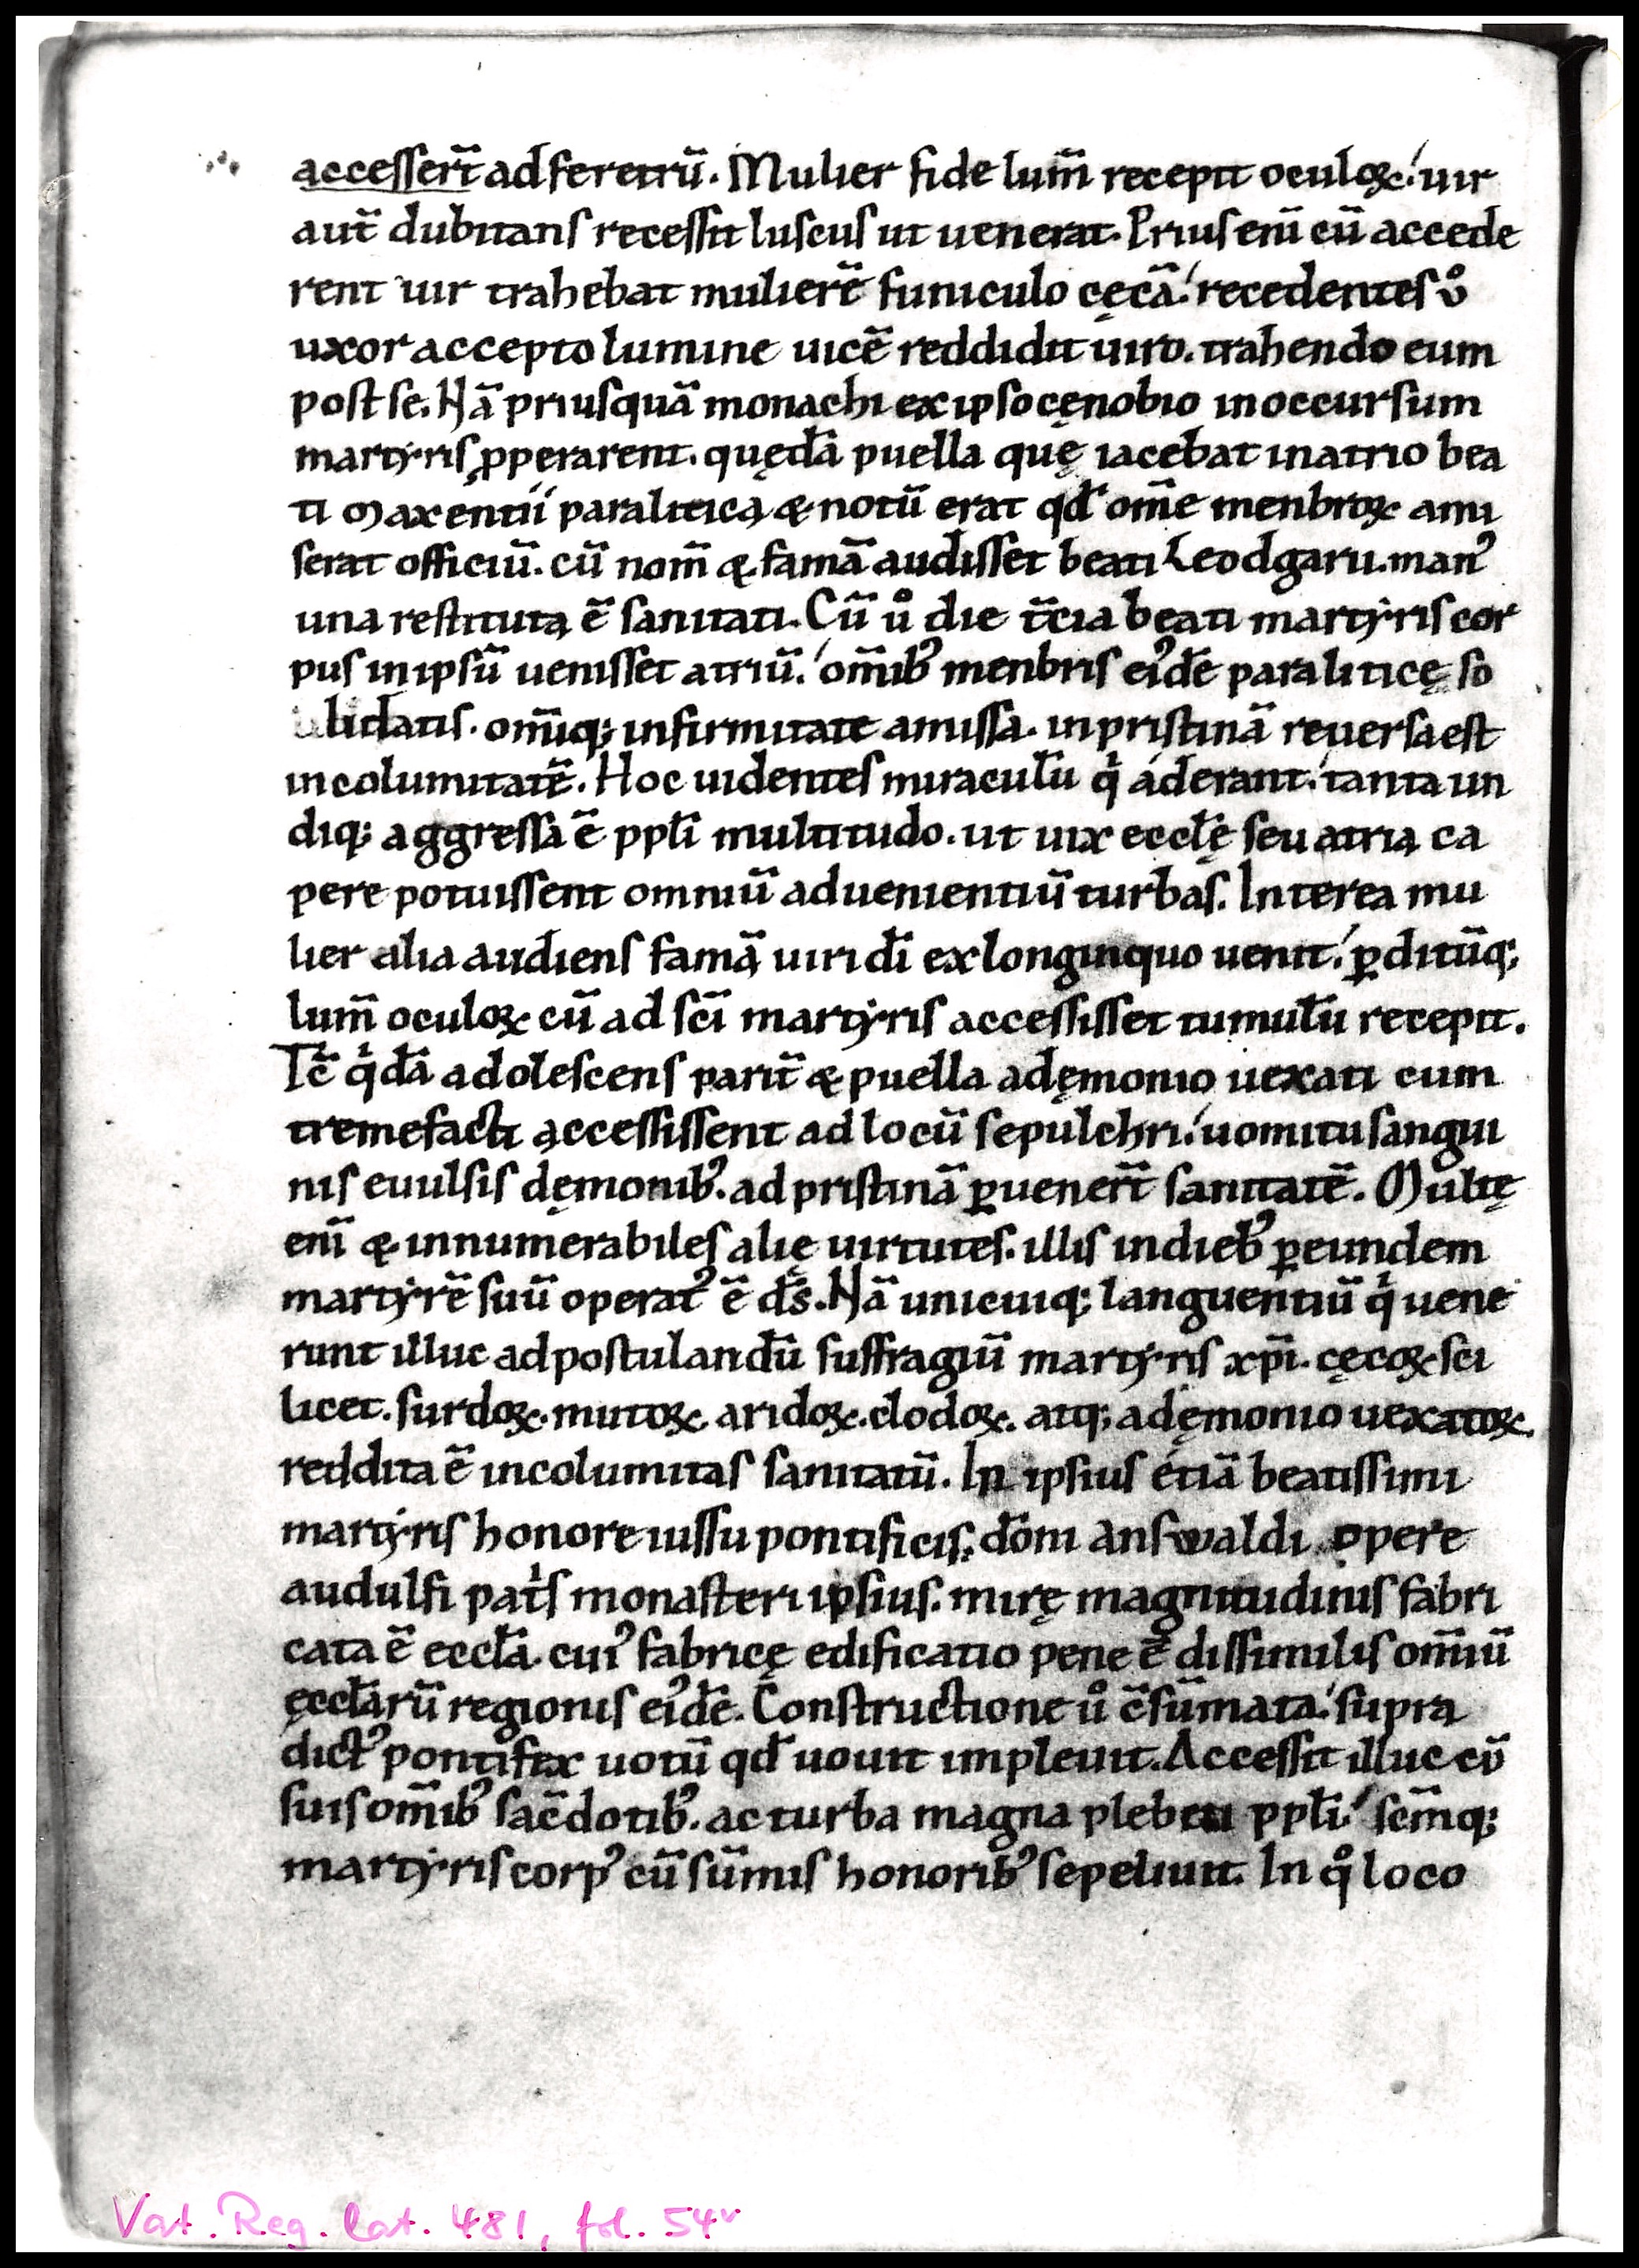 accesser̄t ad feretrū. Mulier fide lum̄ recepit oculoꝝ; uir
aut̄ dubitans recessit luscus ut uenerat. Prius enī cū accede
rent uir trahebat mulierē funiculo cęcā; recedentes ů
uxor accepto lumine uicē reddidit uiro. trahendo eum
post se. Nā priusquā monachi ex ipso cęnobio in occursum
martyris ꝓperarent. quędā puella quę iacebat in atrio bea
ti Maxentii paralitica & notū erat qđ om̄e menbroꝝ ami
serat officiū. cū nom̄ & famā audisset beati Leodgarii. manꝰ
una restituta ē sanitati. Cū ů die t̄cia beati martyris cor
pus in ipsū uenisset atriū; om̄ibꝰ menbris eiꝰdē paraliticę so
lidatis. om̄iq; infirmitate amissa. in pristinā reuersa est
incolumitatē. Hoc uidentes miraculū qͥ aderant; tanta un
diq; aggressa ē ppłi multitudo. ut uix eccłę seu atria ca
pere potuissent omniū aduenientiū turbas. Interea mu
lier alia audiens famā uiri dī ex longinquo uenit; ꝑditūq;
lum̄ oculoꝝ cū ad scī martyris accessisset tumulū recepit.
Tc̄ qͥdā adolescens parit̄ & puella a dęmonio uexati cum
tremefacti accessissent ad locū sepulchri; uomitu sangui
nis euulsis dęmonibꝰ. ad pristinā ꝑuener̄t sanitatē. Multę
enī & innumerabiles alię uirtutes. illis in diebꝰ ꝑ eundem
martyrē suū operatꝰ ē ds̄. Nā unicuiq; languentiū qͥ uene
runt illuc ad postulandū suffragiū martyris xp̄i. cęcoꝝ sci
licet. surdoꝝ. mutoꝝ. aridoꝝ. clodoꝝ. atq; a dęmonio uexatoꝝ.
reddita ē incolumitas sanitatū. In ipsius etiā beatissimi
martyris honore iussu pontificis. dōni answaldi opere
audulfi patͥs monasteri ipsius. mirę magnitudinis fabri
cata ē eccłā. cuiꝰ fabricę edificatio pene ē dissimilis om̄iū
ęccłarū regionis eiꝰdē. Constructione ů c̄sūmata; supra
dictꝰ pontifex uotū qđ uouit impleuit. Accessit illuc cū
suis om̄ibꝰ sac̄dotibꝰ. ac turba magna plebeii ppłi; sc̄mq;
martyris corpꝰ cū sūmis honoribꝰ sepeliuit. In qͦ loco
Vat. Reg. lat. 481, fol. 54v